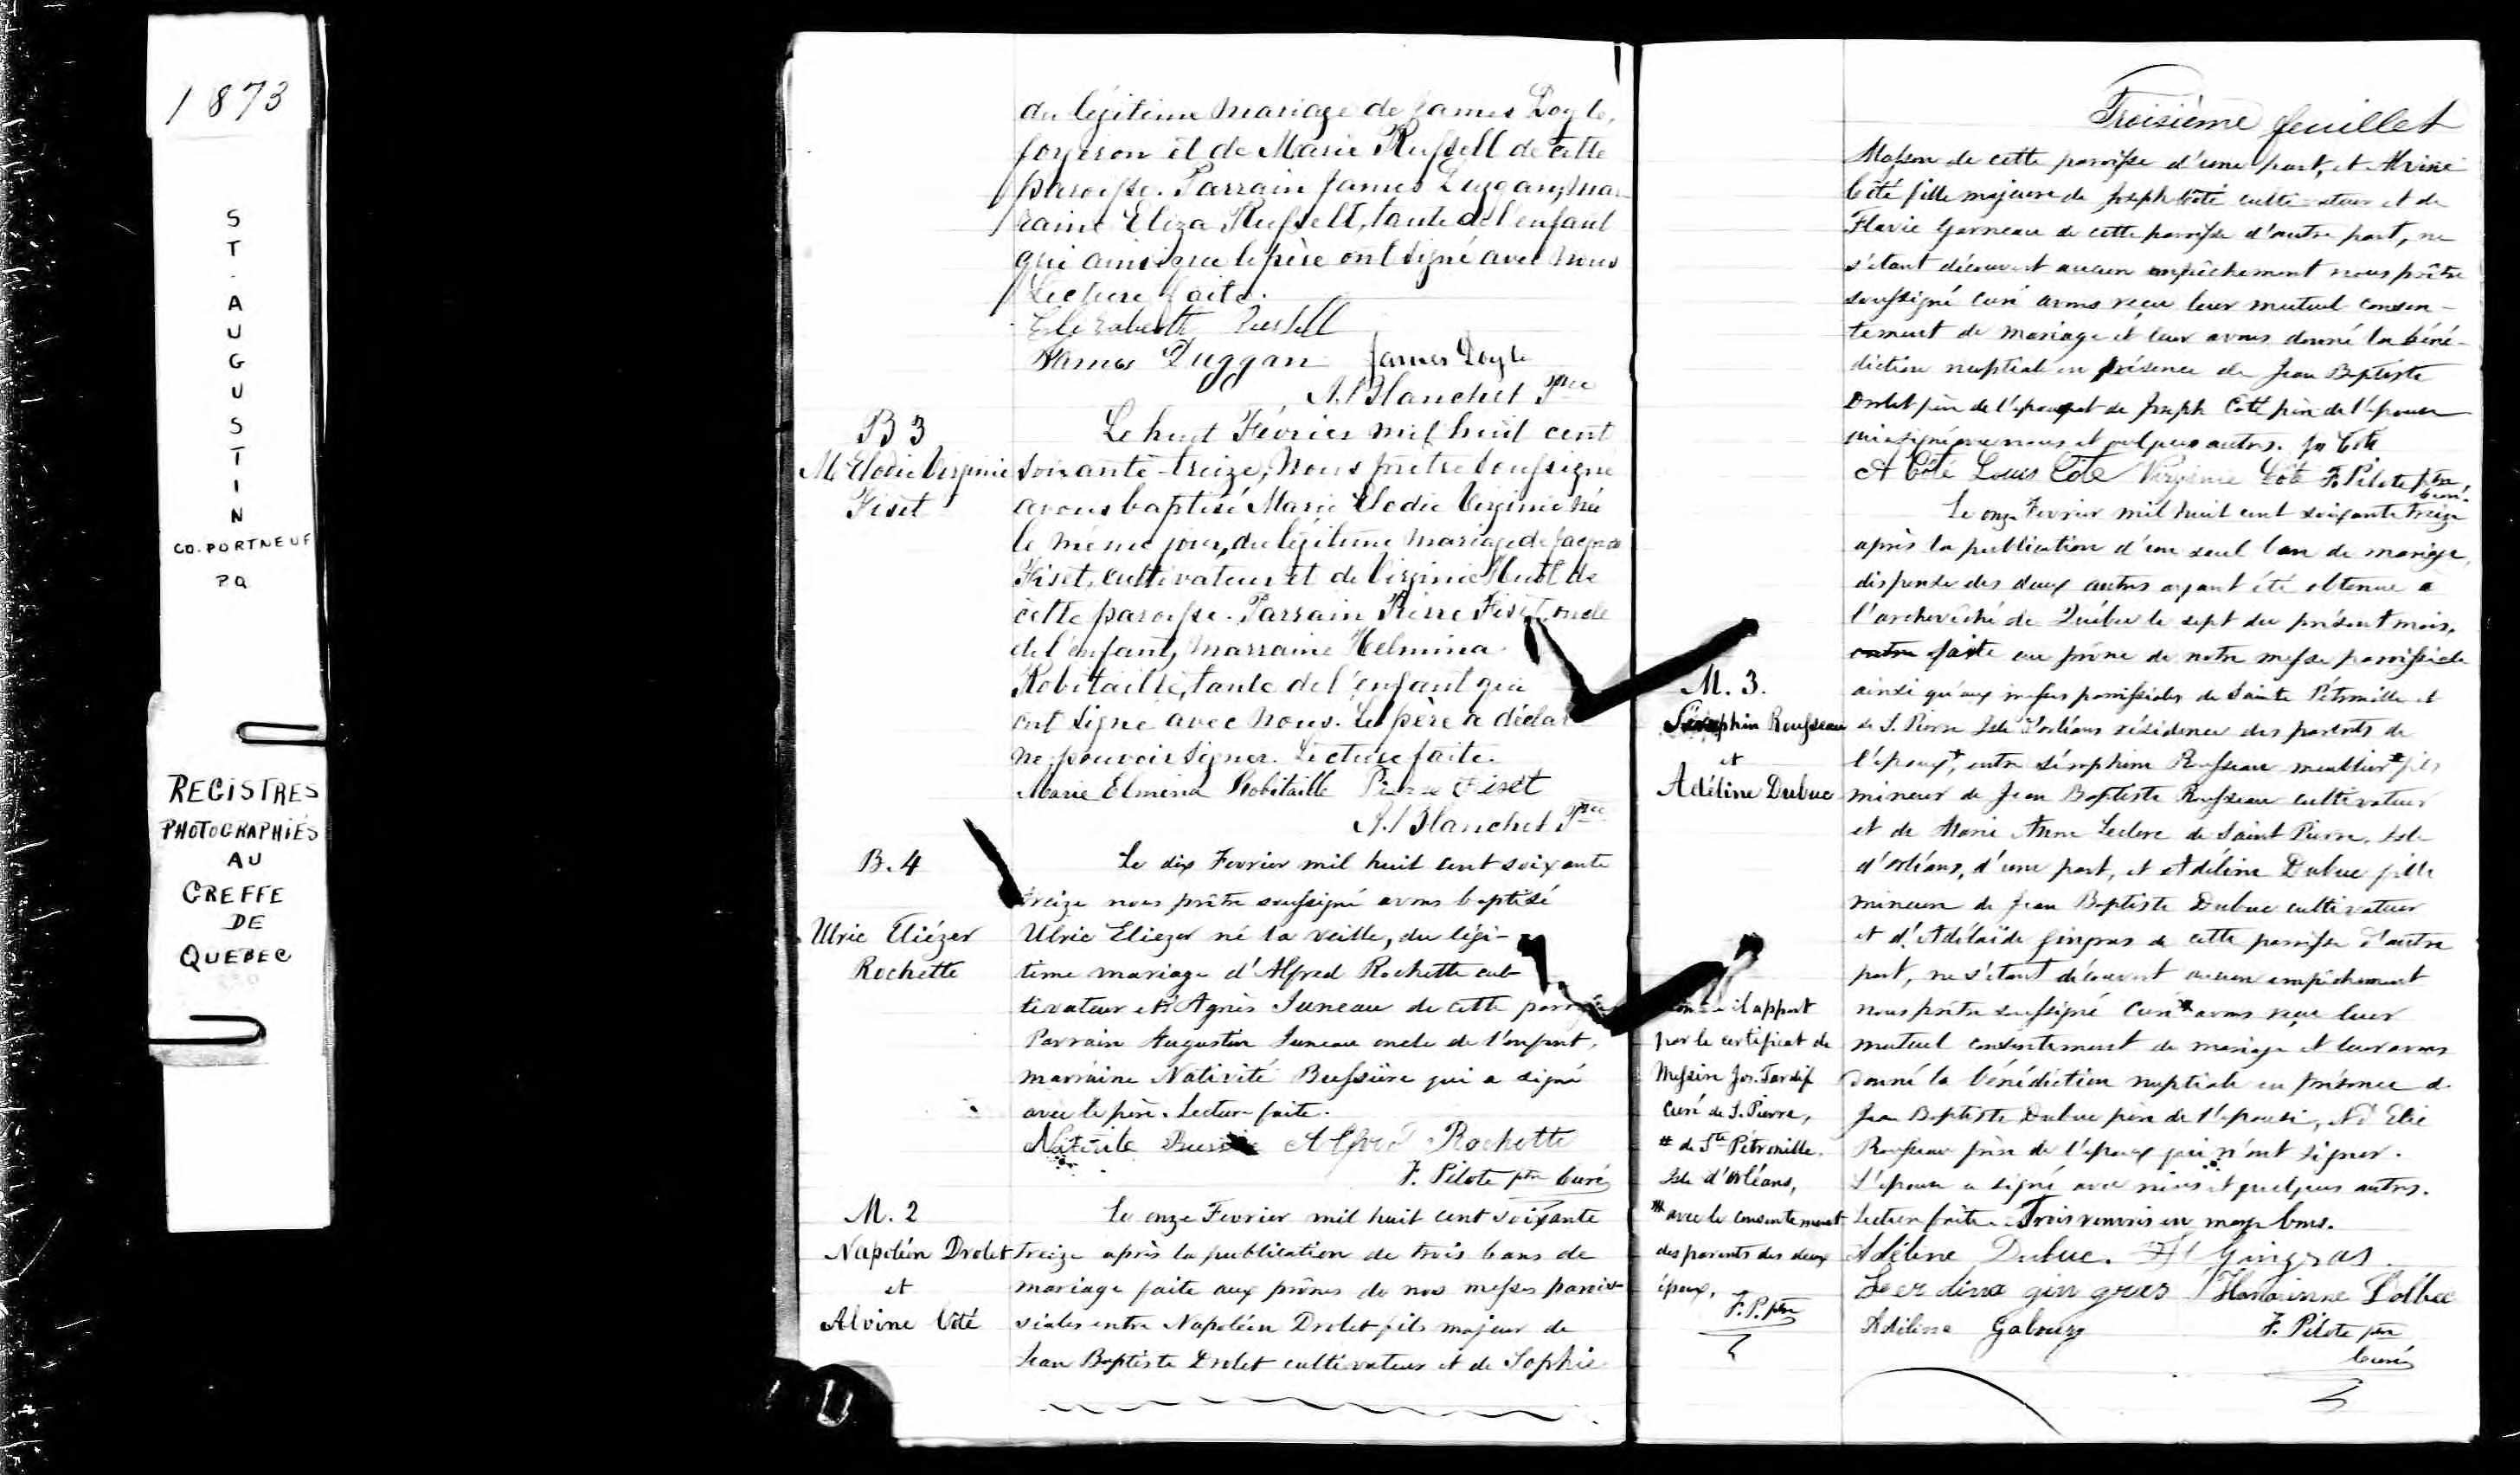 1873
ST. AUGUSTIN
CO. PORTNEUF
PQ
REGISTRES
PHOTOGRAPHIÉS
AU
GREFFE
DE
QUEBEC
du légitime mariage de James Doyle,
forgeron et de Marie Russell de cette
paroisse. Parrain James Duggan, mar-
raine Eliza Russell, tante de l'enfant
qui ainsi que le père ont signé avec nous
Lecture faite.
Elizabeth Russell
James Duggan James Doyle
A. Blanchet Ptre
B 3
M. Elodie Virginie
Fiset
Le huit Février mil huit cent
soixante-treize, nous prêtre soussigné
avons baptisé Marie Elodie Virginie née
le même jour, du légitime mariage de Jacques
Fiset, cultivateur et de Virginie Huot de
cette paroisse. Parrain Pierre Fiset, oncle
de l'enfant, marraine Helmina
Robitaille, tante de l'enfant qui
ont signé avec nous. Le père a déclaré
ne pouvoir signer. Lecture faite.
Marie Elmina Robitaille Pierre Fiset
A. Blanchet Ptre
B. 4
Ulric Eliézer
Rochette
Le dix Fevrier mil huit cent soixante
treize nous prêtre soussigné avons baptisé
Ulric Eliezer né la veille, du légi-
time mariage d'Alfred Rochette cul-
tivateur et d'Agnès Juneau de cette paroisse
Parrain Augustin Juneau oncle de l'enfant,
marraine Nativité Bussière qui a signé
avec le père. Lecture faite.
Alfred Rochette
F. Pilote ptre Curé
M. 2
Napoléon Drolet
et
Alvine Côté
Le onze Fevrier mil huit cent soixante
treize après la publication de trois bans de
mariage faite aux prônes de nos messes parois-
siales entre Napoléon Drolet fils majeur de
Jean Baptiste Drolet cultivateur et de Sophie
Troisième feuillet
Masson de cette paroisse d'une part, et Alvine
Côté fille majeure de Joseph Côté cultivateur et de
Flavie Garneau de cette paroisse d'autre part, ne
s'étant découvert aucun empêchement nous prêtre
soussigné curé avons reçu leur mutuel consen-
tement de mariage et leur avons donné la béné-
diction nuptiale en présence de Jean Baptiste
Drolet père de l'époux et de Joseph Côté père de l'épouse
qui a signé avec nous et quelques autres. Jos Côté
A Côté Louis Côté Virginie Côté F. Pilote ptre
Curé.
M. 3.
Séraphin Rousseau
et
Adéline Dubuc
Le onze Fevrier mil huit cent soixante treize
après la publication d'un seul ban de mariage,
dispense des deux autres ayant été obtenue a
l'archevêché de Québec le sept du présent mois,
entre faite au prône de notre messe paroissiale
ainsi qu'aux messes paroissiales de Sainte Pétronille et
de S. Pierre Isle d'Orléans résidence des parents de
l'époux, entre Séraphin Rousseau meublier fils
mineur de Jean Baptiste Rousseau cultivateur
et de Marie Anne Leclerc de Saint Pierre, Isle
d'Orléans, d'une part, et Adéline Dubuc fille
mineure de Jean Baptiste Dubuc cultivateur
et d'Adélaïde Gingras de cette paroisse d'autre
part, ne s'étant découvert aucun empêchement
nous prêtre soussigné Curé* avons reçu leur
mutuel consentement de mariage et leur avons
donné la bénédiction nuptiale en présence de
Jean Baptiste Dubuc père de l'épouse, et d'Elie
Rousseau frère de l'époux qui n'ont signer.
L'épouse a signé avec nous et quelques autres.
Lecture faite. Trois renvois en marge bons.
il appert
par le certificat de
Messire Jos. Tardif
Curé de S. Pierre,
# de Ste Pétronille.
Isle d'Orléans,
* avec le consentement
des parents des deux
époux,
F. P. ptre
Adéline Dubuc. Gingras
Leerdina gingras
Adéline Gaboury F. Pilote ptre
Curé